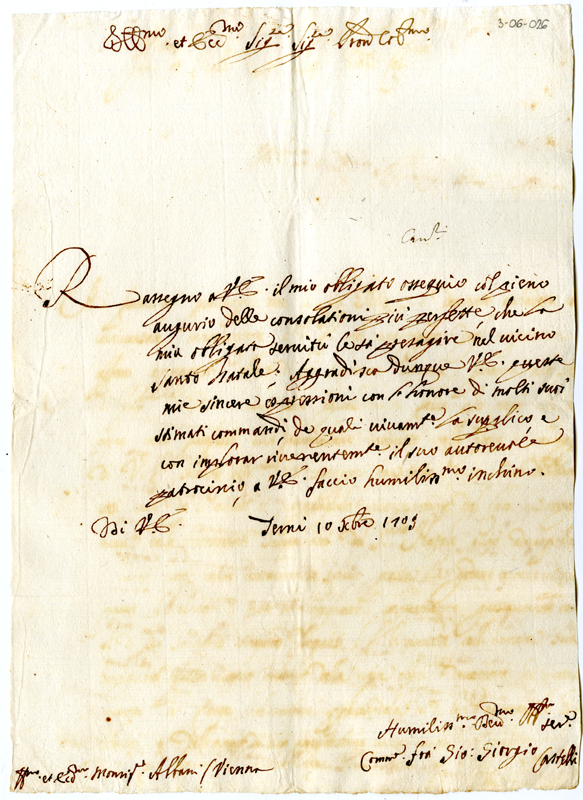 3-06-026
Ill.mo et Ecc.mo Sig.re Sig.re Pron Col.mo
Rassegno a V.E. il mio obligato osseqqio col pieno
augurio delle consolationi più perfette, che la
mia obligata servitù le sà presagire nel vicino
Santo Natale. Aggradisca dunque V.E. queste
mie sincere espressioni con l'honore di molti suoi
stimati commandi, de quali vivam.te la supplico e
con implorar riverentem.te il suo autorevole
patrocinio, a V.E. faccio humiliss.mo inchino.
Di V.E. Terni 10 Xbre 1709
Humiliss.mo Dev.mo
ser.
Comm.e frà Gio: Giorgio Castelli
Ill.mo et Ecc.mo Monsig.r Albani / Vienna